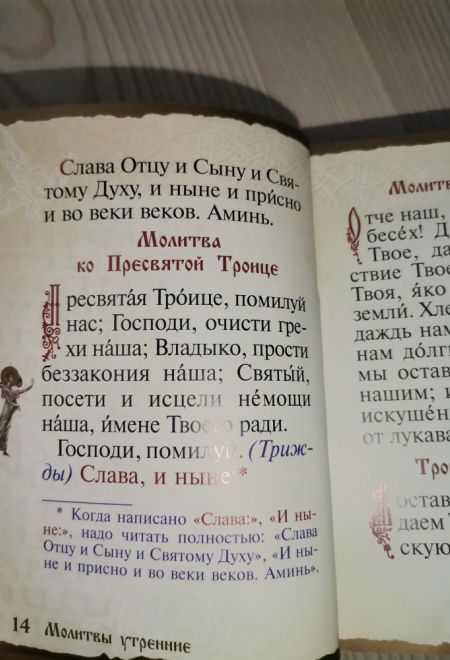 Слава Отцу и Сыну и Свя-
тому Духу, и ныне и при́сно
и во веки веков. Аминь.
Молитва
ко Пресвятой Троице
Пресвята́я Тро́ице, помилуй
нас; Господи, очисти гре-
хи на́ша; Владыко, прости
беззакония на́ша; Святы́й,
посети и исцели не́мощи
на́ша, и́мене Твоего ради.
Господи, помилуй. (Триж-
ды) Слава, и ныне:*
* Когда написано «Слава:», «И ны-
не:», надо читать полностью: «Слава
Отцу и Сыну и Святому Духу», «И ны-
не и присно и во веки веков. Аминь».
14 Молитвы утренние
Молитв
Отче наш,
бесе́х! Д
Твое, да
ствие Твое
Твоя, я́ко
земли́. Хле
даждь нам
нам до́лги
мы остав
нашим; и
искуше́н
от лукава
Тро
остав
даем Т
скую